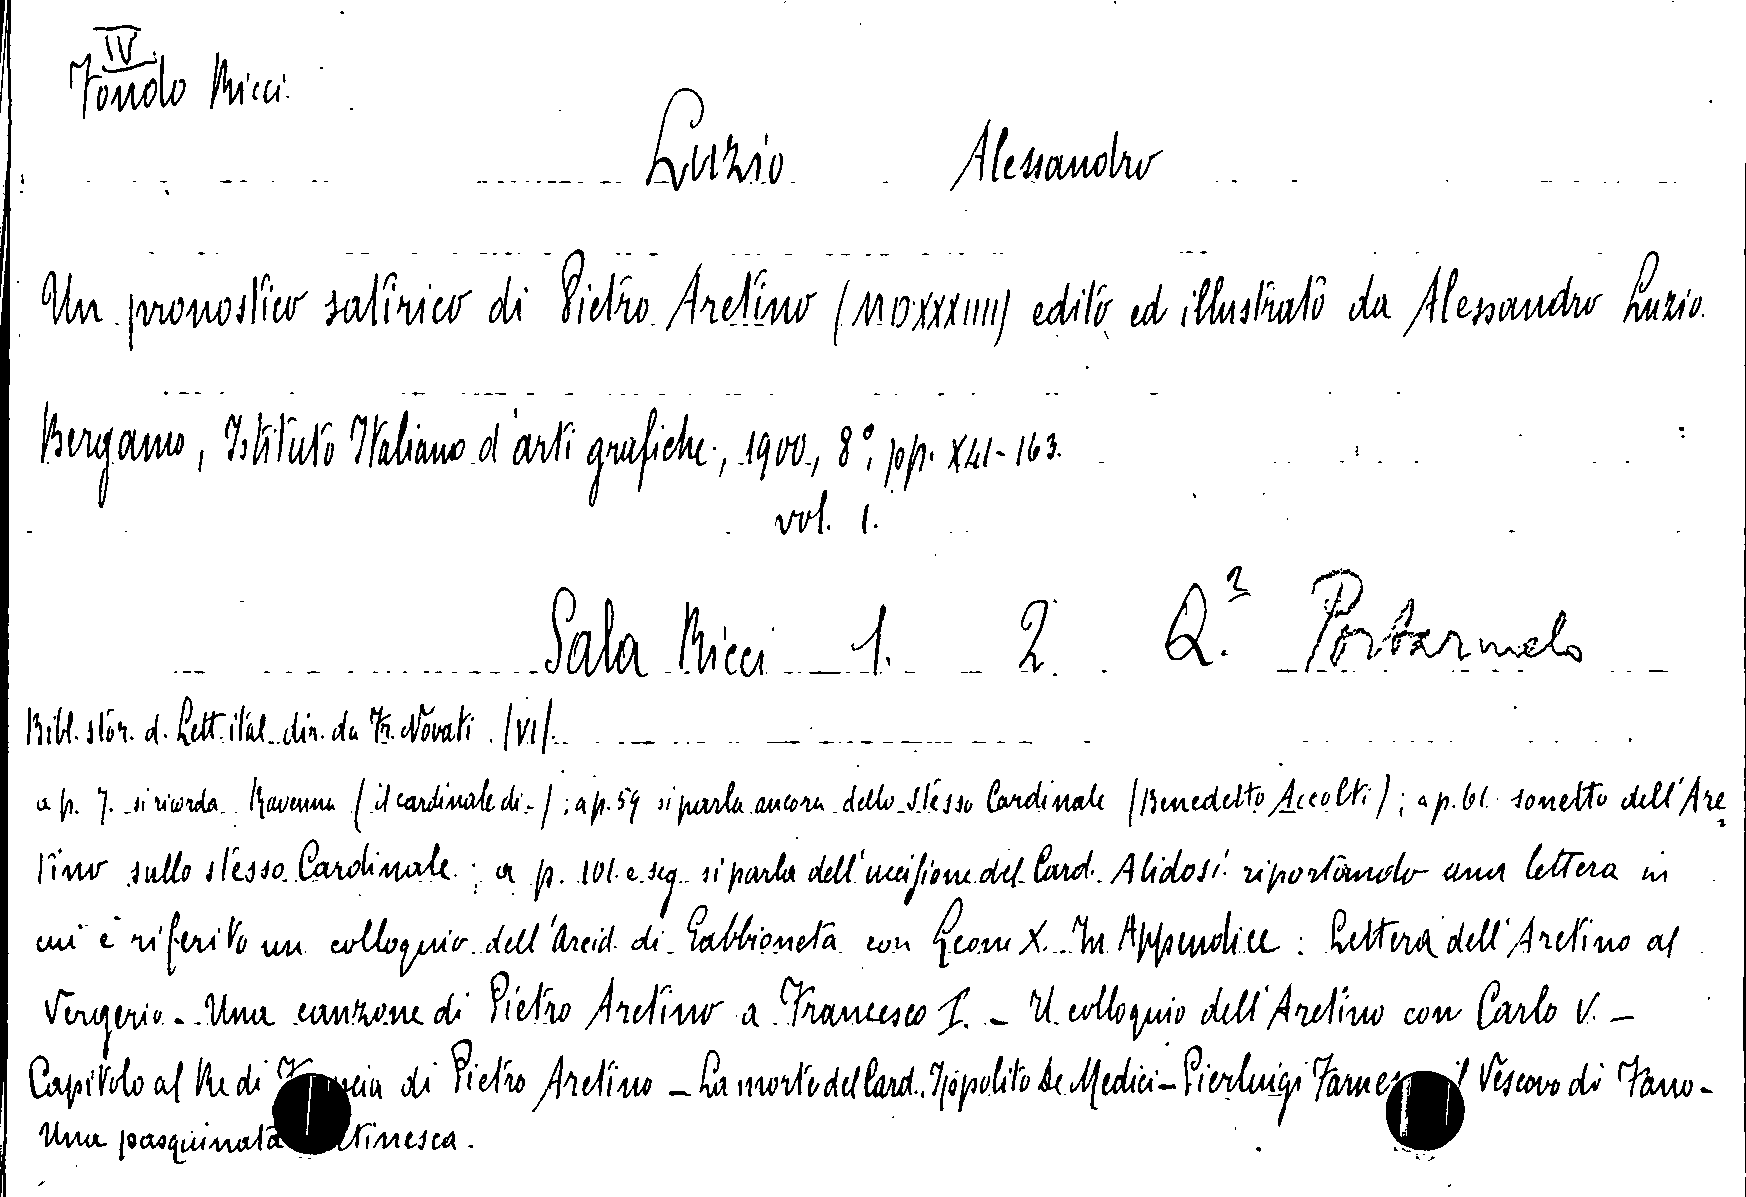 IV
Fondo Ricci.
Luzio Alessandro
Un pronostico satirico di Pietro Aretino (MDXXXIIII) edito ed illustrato da Alessandro Luzio.
Bergamo, Istituto Italiano d'arti grafiche, 1900, 8°, pp. XLII-163.
vol. 1.
Sala Ricci 1. 2. Q.²
Bibl. stor. d. Lett. ital. dir. da Fr. Novati. (VI).
a p. 7. si ricorda Ravenna (il cardinale di-); a p. 59 si parla ancora dello stesso Cardinale (Benedetto Accolti); a p. 61. sonetto dell'Are-
tino sullo stesso Cardinale; a p. 101. e seg. si parla dell'uccisione del Card. Alidosi riportando una lettera in
cui è riferito un colloquio dell'Arcid. di Gabbioneta con Leone X. In Appendice: Lettera dell'Aretino al
Vergerio - Una canzone di Pietro Aretino a Francesco I. - Il colloquio dell'Aretino con Carlo V. -
Capitolo al Re di Francia di Pietro Aretino - La morte del Card. Ippolito De Medici - Pierluigi Farnese il Vescovo di Fano -
Una pasquinata aretinesca.